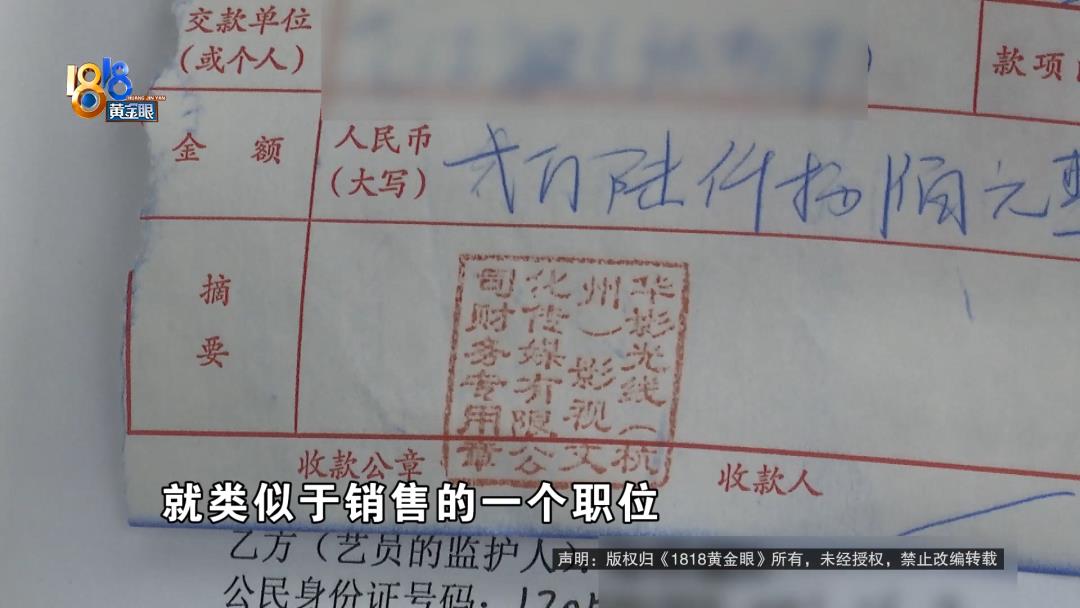 1818
HUANG JIN YAN
黄金眼
交款单位
（或个人）
款项
金 额
人民币
（大写）
万陆仟 佰元整
摘
要
华影光线（杭
州）影视文
化传媒有限公
司财务专用章
收款公章
收款人
就类似于销售的一个职位
乙方（艺员的监护人）
声明：版权归《1818黄金眼》所有，未经授权，禁止改编转载
公民身份证号码：